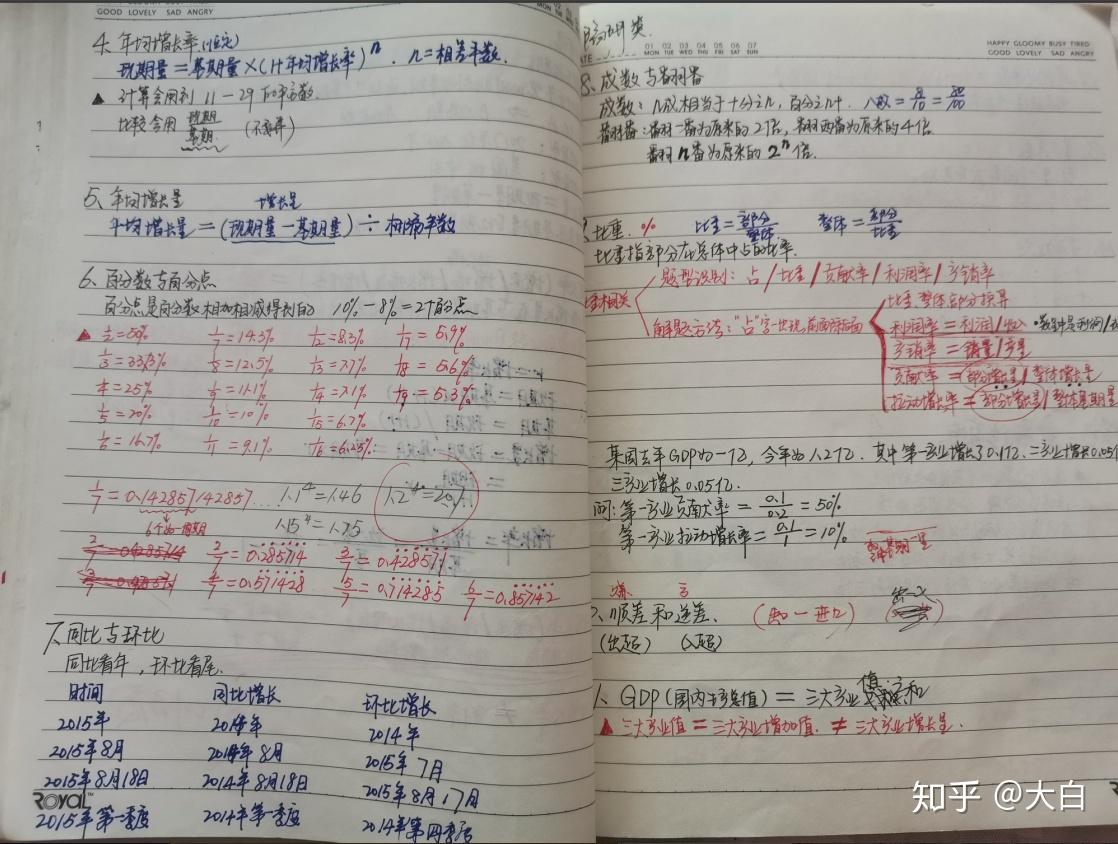 GOOD LOVELY SAD ANGRY
4. 年均增长率(恒定)
现期量=基期量×(1+年均增长率)ⁿ. n=相差年数.
▲ 计算会用到 11-29 的平方数.
比较会用 现期/基期 (不需开)
5、年均增长量 增长量
年均增长量=(现期量-基期量)÷相隔年数
6、百分数与百分点
百分点是百分数相加相减得到的 10%-8%=2个百分点
▲ 1/2=50% 1/7=14.3% 1/12=8.3% 1/17=5.9%
1/3=33.3% 1/8=12.5% 1/13=7.7% 1/18=5.6%
1/4=25% 1/9=11.1% 1/14=7.1% 1/19=5.3%
1/5=20% 1/10=10% 1/15=6.7%
1/6=16.7% 1/11=9.1% 1/16=6.25%
1/7=0.142857142857... 1.1⁴=1.46 1.2⁴=207%
6个数一周期 1.15⁴=1.75
2/7=0.285714 3/7=0.428571
4/7=0.571428 5/7=0.714285 6/7=0.857142
7.同比与环比
同比看年,环比看尾.
时间 同比增长 环比增长
2015年 2014年 2014年
2015年8月 2014年8月 2015年7月
2015年8月18日 2014年8月18日 2015年8月17日
2015年第一季度 2014年第一季度 2014年第四季度
ROYAL™
01 02 03 04 05 06 07
MON TUE WED THU FRI SAT SUN
HAPPY GLOOMY BUSY TIRED
GOOD LOVELY SAD ANGRY
8.成数与翻番
成数:n成相当于十分之n,百分之n十. 八成=8/10=80/100
翻番:翻一番为原来的2倍,翻两番为原来的4倍
翻n番为原来的2ⁿ倍.
比重. % 比重=部分/整体 整体=部分/比重
比重指部分在总体中占的比率.
比重相关
题型识别:占/比重/贡献率/利润率/产销率
解题方法:"占"字一出现前面除后面
比重整体部分换算
利润率=利润/收入
产销率=销量/产量
贡献率=部分增长量/整体增长量
拉动增长率=部分增长量/整体基期量
某国去年GDP为一亿,今年为1.2亿.其中第一产业增长了0.1亿.二产业增长0.05亿
三产业增长0.05亿.
问:第一产业贡献率=0.1/0.2=50%
第一产业拉动增长率=0.1/1=10%
顺差和逆差.
(出超) (入超)
GDP(国内生产总值)=三大产业值之和
▲ 三大产业值=三大产业增加值.≠三大产业增长量.
知乎 @大白